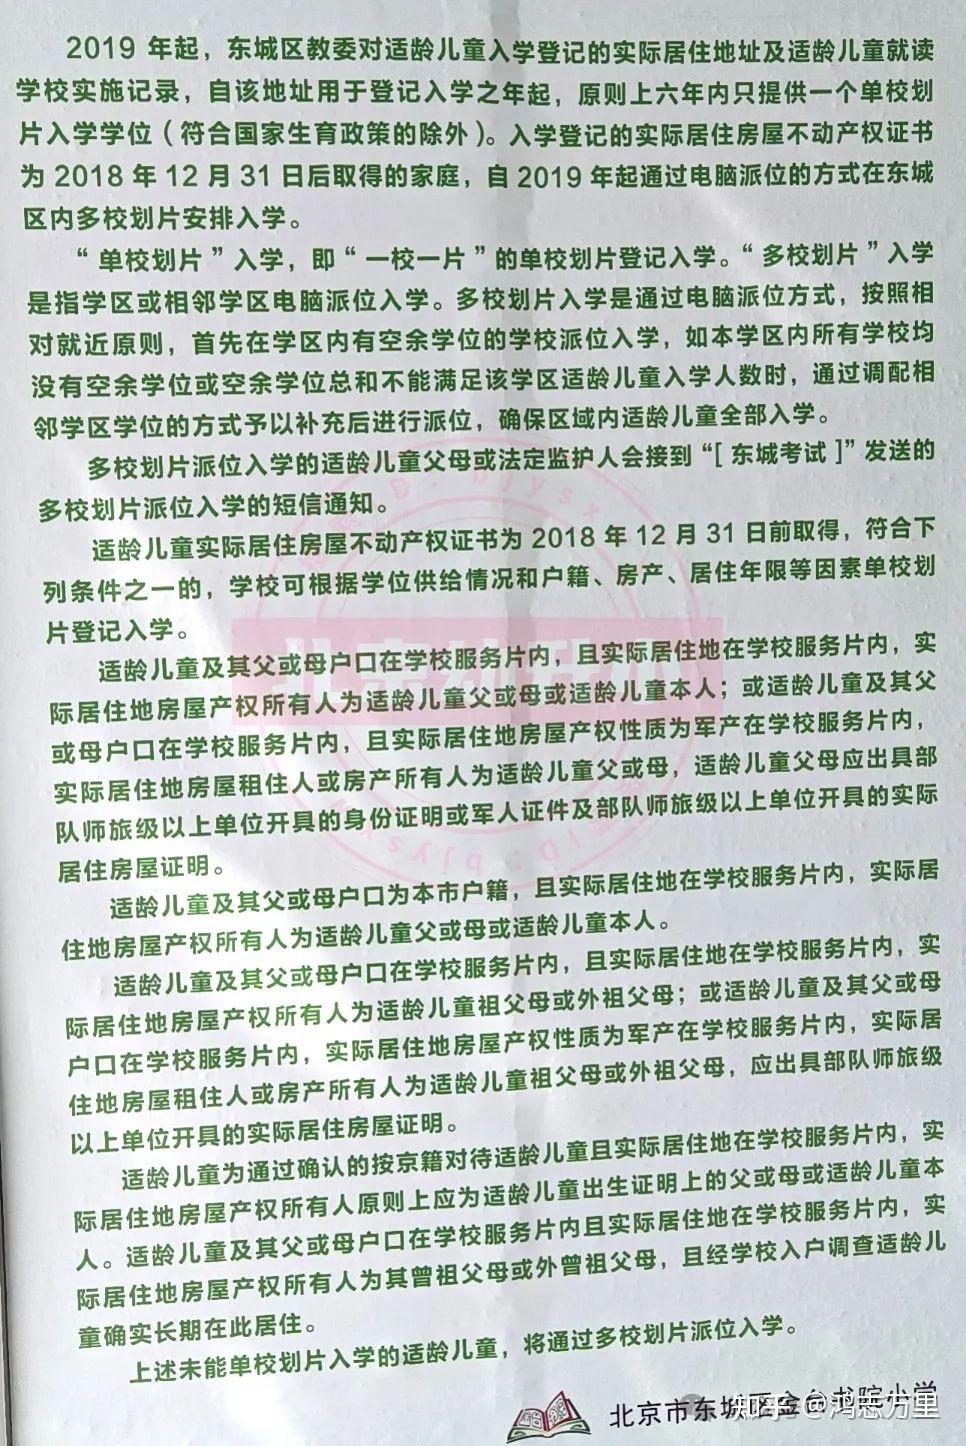 2019 年起，东城区教委对适龄儿童入学登记的实际居住地址及适龄儿童就读
学校实施记录，自该地址用于登记入学之年起，原则上六年内只提供一个单校划
片入学学位（符合国家生育政策的除外）。入学登记的实际居住房屋不动产权证书
为 2018 年 12 月 31 日后取得的家庭，自 2019 年起通过电脑派位的方式在东城
区内多校划片安排入学。
“ 单校划片 ” 入学，即 “ 一校一片 ” 的单校划片登记入学。“ 多校划片 ” 入学
是指学区或相邻学区电脑派位入学。多校划片入学是通过电脑派位方式，按照相
对就近原则，首先在学区内有空余学位的学校派位入学，如本学区内所有学校均
没有空余学位或空余学位总和不能满足该学区适龄儿童入学人数时，通过调配相
邻学区学位的方式予以补充后进行派位，确保区域内适龄儿童全部入学。
多校划片派位入学的适龄儿童父母或法定监护人会接到 “[ 东城考试 ]” 发送的
多校划片派位入学的短信通知。
适龄儿童实际居住房屋不动产权证书为 2018 年 12 月 31 日前取得，符合下
列条件之一的，学校可根据学位供给情况和户籍、房产、居住年限等因素单校划
片登记入学。
适龄儿童及其父或母户口在学校服务片内，且实际居住地在学校服务片内，实
际居住地房屋产权所有人为适龄儿童父或母或适龄儿童本人；或适龄儿童及其父
或母户口在学校服务片内，且实际居住地房屋产权性质为军产在学校服务片内，
实际居住地房屋租住人或房产所有人为适龄儿童父或母，适龄儿童父母应出具部
队师旅级以上单位开具的身份证明或军人证件及部队师旅级以上单位开具的实际
居住房屋证明。
适龄儿童及其父或母户口为本市户籍，且实际居住地在学校服务片内，实际居
住地房屋产权所有人为适龄儿童父或母或适龄儿童本人。
适龄儿童及其父或母户口在学校服务片内，且实际居住地在学校服务片内，实
际居住地房屋产权所有人为适龄儿童祖父母或外祖父母；或适龄儿童及其父或母
户口在学校服务片内，实际居住地房屋产权性质为军产在学校服务片内，实际居
住地房屋租住人或房产所有人为适龄儿童祖父母或外祖父母，应出具部队师旅级
以上单位开具的实际居住房屋证明。
适龄儿童为通过确认的按京籍对待适龄儿童且实际居住地在学校服务片内，实
际居住地房屋产权所有人原则上应为适龄儿童出生证明上的父或母或适龄儿童本
人。适龄儿童及其父或母户口在学校服务片内且实际居住地在学校服务片内，实
际居住地房屋产权所有人为其曾祖父母或外曾祖父母，且经学校入户调查适龄儿
童确实长期在此居住。
上述未能单校划片入学的适龄儿童，将通过多校划片派位入学。
北京市东城区金台书院小学
知乎 @鸿志万里
北京幼升小
ID: bjysx